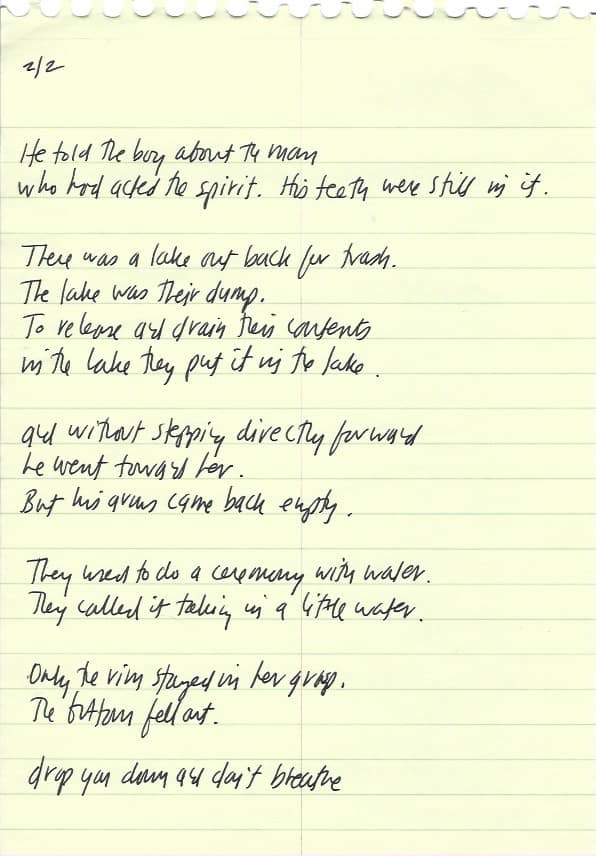 2/2
He told the boy about the man
who had acted the spirit. His teeth were still in it.
There was a lake out back for trash.
The lake was their dump.
To release and drain their contents
in the lake they put it in the lake.
and without stepping directly forward
he went toward her.
But his arms came back empty.
They used to do a ceremony with water.
They called it taking in a little water.
Only the rim stayed in her grasp.
The bottom fell out.
drop you down and don't breathe